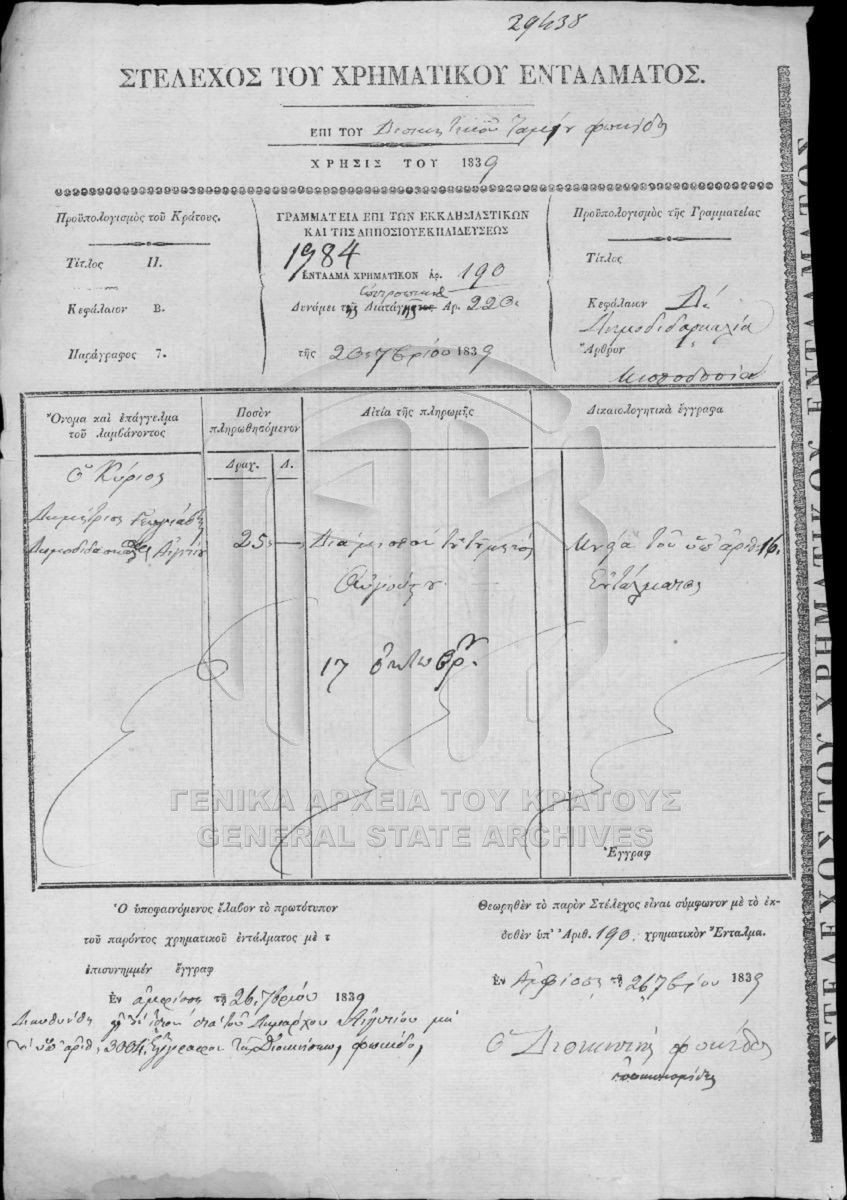 29438
ΣΤΕΛΕΧΟΣ ΤΟΥ ΧΡΗΜΑΤΙΚΟΥ ΕΝΤΑΛΜΑΤΟΣ.
ΕΠΙ ΤΟΥ Διοικητικοῦ Ταμείου Φωκίδος
ΧΡΗΣΙΣ ΤΟΥ 1839
Προϋπολογισμὸς τοῦ Κράτους.
Τίτλος II.
Κεφάλαιον Β.
Παράγραφος 7.
ΓΡΑΜΜΑΤΕΙΑ ΕΠΙ ΤΩΝ ΕΚΚΛΗΣΙΑΣΤΙΚΩΝ
ΚΑΙ ΤΗΣ ΔΗΜΟΣΙΟΥ ΕΚΠΑΙΔΕΥΣΕΩΣ
1984
ΕΝΤΑΛΜΑ ΧΡΗΜΑΤΙΚΟΝ ἀρ. 190
Δυνάμει τῆς Διαταγῆς Αρ. 220.
τῆς 20, 7βρίου 1839
Προϋπολογισμὸς τῆς Γραμματείας
Τίτλος
Κεφάλαιον Δ.
Δημοδιδασκαλία
Ἄρθρον
Μισθοδοσία
Ὄνομα καὶ ἐπάγγελμα
τοῦ λαμβάνοντος
Ποσὸν
πληρωθησόμενον
Αἰτία τῆς πληρωμῆς
Δικαιολογητικὰ ἔγγραφα
Δραχ. Λ.
Ὁ Κύριος
Δημήτριος
Δημοδιδάσκαλος
25
Διὰ μισθόν του τοῦ μηνὸς
Αὐγούστου
Μετὰ τοῦ ὑπ' ἀριθ. 16.
Ἐντάλματος
17 Ὀκτωβρ.
Ἔγγραφ
Ὁ ὑποφαινόμενος ἔλαβον τὸ πρωτότυπον
τοῦ παρόντος χρηματικοῦ ἐντάλματος μὲ τ
ἐπισυνημμέν ἔγγραφ
Ἐν Ἀμφίσσῃ τῇ 26, 7βρίου 1839
Διευθύνθη διὰ τοῦ Δημάρχου Αἰγιτίου μὲ
τὸ ὑπ' ἀριθ. 3004 ἔγγραφον τῆς Διοικήσεως Φωκίδος
Θεωρηθὲν τὸ παρὸν Στέλεχος εἶναι σύμφωνον μὲ τὸ ἐκ-
δοθὲν ὑπ' Ἀριθ. 190. χρηματικὸν Ἔνταλμα.
Ἐν Ἀμφίσσῃ τῇ 26, 7βρίου 1839
Ὁ Διοικητὴς Φωκίδος
ΣΤΕΛΕΧΟΣ ΤΟΥ ΧΡΗΜΑΤΙΚΟΥ ΕΝΤΑΛΜΑΤΟΣ
ΓΕΝΙΚΑ ΑΡΧΕΙΑ ΤΟΥ ΚΡΑΤΟΥΣ
GENERAL STATE ARCHIVES